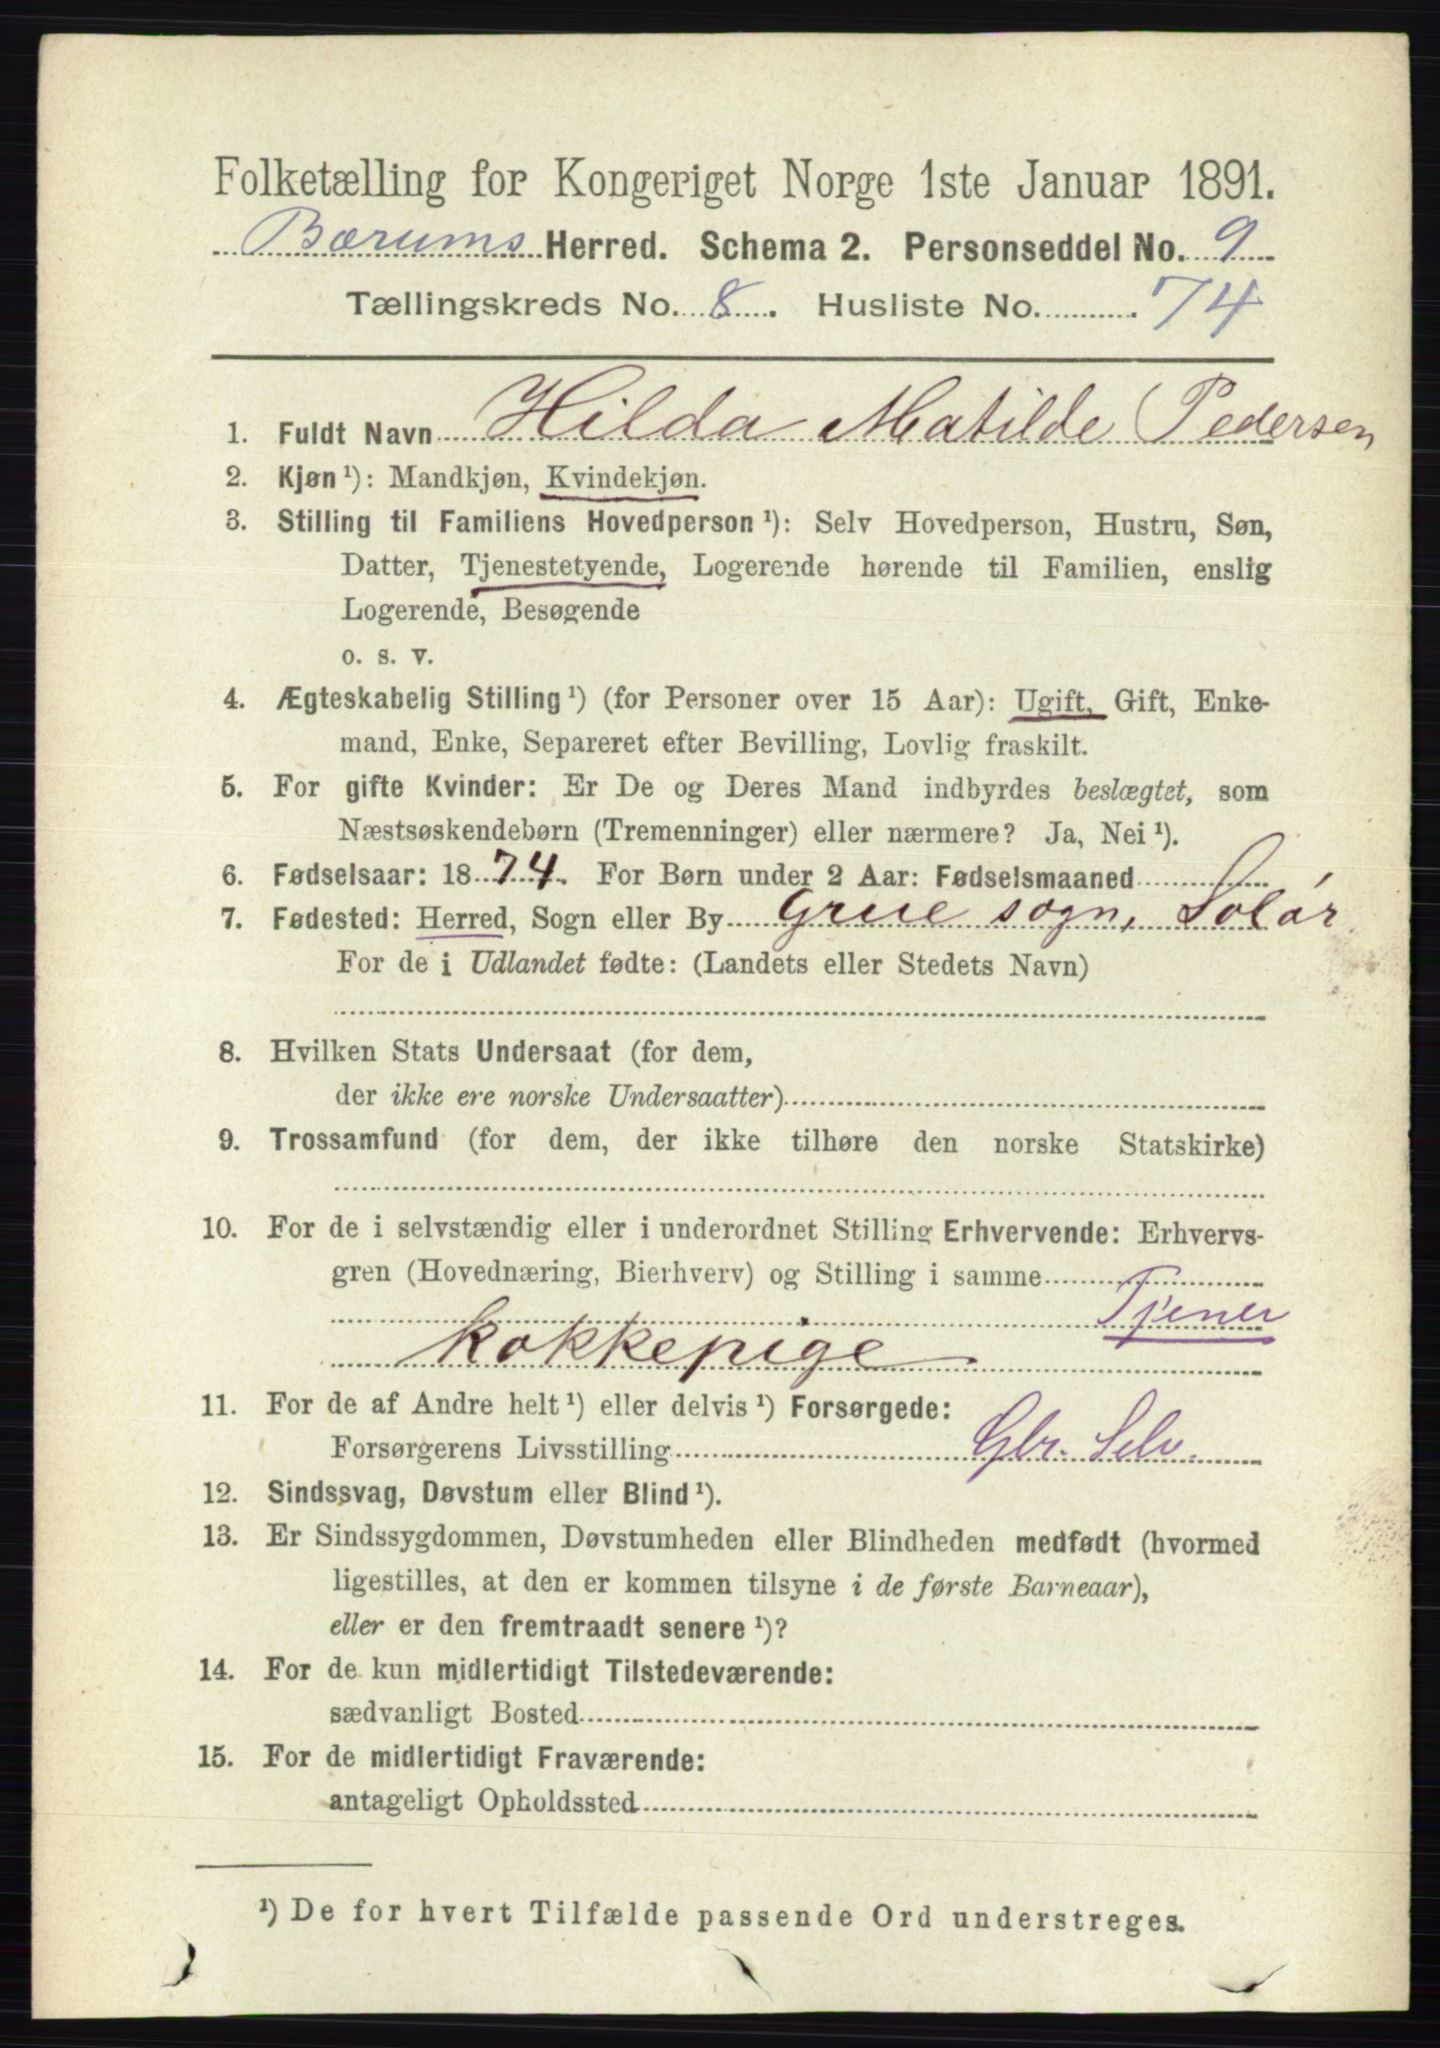 Folketælling for Kongeriget Norge 1ste Januar 1891.
Bærums Herred. Schema 2. Personseddel No. 9
Tællingskreds No. 8. Husliste No. 74
1. Fuldt Navn Hilda Matilde Pedersen
2. Kjøn ¹): Mandkjøn, Kvindekjøn.
3. Stilling til Familiens Hovedperson ¹): Selv Hovedperson, Hustru, Søn,
Datter, Tjenestetyende, Logerende hørende til Familien, enslig
Logerende, Besøgende
o. s. v.
4. Ægteskabelig Stilling ¹) (for Personer over 15 Aar): Ugift, Gift, Enke-
mand, Enke, Separeret efter Bevilling, Lovlig fraskilt.
5. For gifte Kvinder: Er De og Deres Mand indbyrdes beslægtet, som
Næstsøskendebørn (Tremenninger) eller nærmere? Ja, Nei ¹).
6. Fødselsaar: 1874. For Børn under 2 Aar: Fødselsmaaned
7. Fødested: Herred, Sogn eller By Grue sogn, Solør
For de i Udlandet fødte: (Landets eller Stedets Navn)
8. Hvilken Stats Undersaat (for dem,
der ikke ere norske Undersaatter)
9. Trossamfund (for dem, der ikke tilhøre den norske Statskirke)
10. For de i selvstændig eller i underordnet Stilling Erhvervende: Erhvervs-
gren (Hovednæring, Bierhverv) og Stilling i samme
Tjener
kokkepige
11. For de af Andre helt ¹) eller delvis ¹) Forsørgede:
Forsørgerens Livsstilling Gbr. Selv.
12. Sindssvag, Døvstum eller Blind ¹).
13. Er Sindssygdommen, Døvstumheden eller Blindheden medfødt (hvormed
ligestilles, at den er kommen tilsyne i de første Barneaar),
eller er den fremtraadt senere ¹)?
14. For de kun midlertidigt Tilstedeværende:
sædvanligt Bosted
15. For de midlertidigt Fraværende:
antageligt Opholdssted
¹) De for hvert Tilfælde passende Ord understreges.